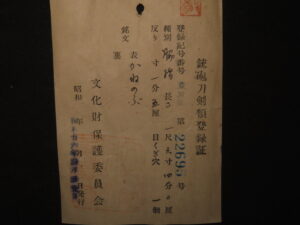 銃砲刀剣類登録証
登録記号番号 東京 第22695号
種別 脇指 長さ 一尺 寸四分 厘
反り 寸一分五厘 目くぎ穴 一個
銘文 表 かねのぶ
裏
文化財保護委員会
昭和 年 月 日発行